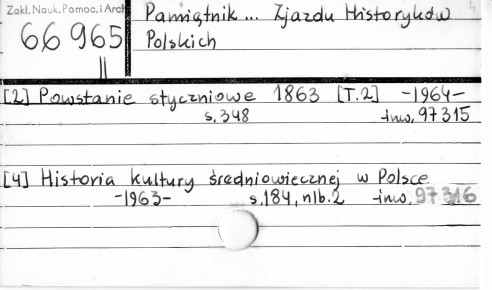 Zakł. Nauk. Pomoc. i Arch
66 965
II
Pamiątnik ... Zjazdu Historyków
Polskich
[2] Powstanie styczniowe 1863 [T.2] -1964-
s. 348 -inw. 97315
[4] Historia kultury średniowiecznej w Polsce
-1963- s. 184, nlb. 2 -inw. 97316